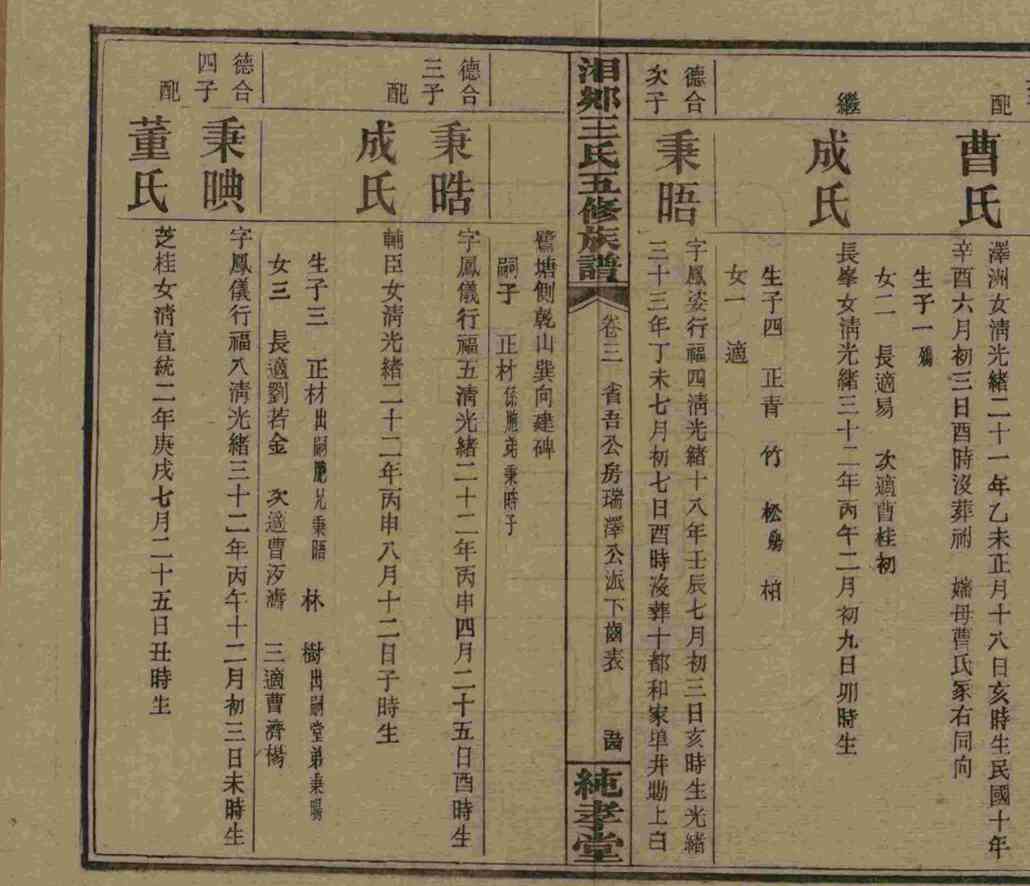 配
曹氏
澤洲女淸光緒二十一年乙未正月十八日亥時生民國十年
辛酉六月初三日酉時沒葬祔 嫡母曹氏冢右同向
生子一 殤
女二 長適易 次適曹桂初
繼
成氏
長峯女淸光緒三十二年丙午二月初九日卯時生
生子四 正青 竹 松殤 柏
女一 適
德合
次子
秉晤
字鳳姿行福四淸光緒十八年壬辰七月初三日亥時生光緒
三十三年丁未七月初七日酉時沒葬十都和家埠井坳上白
湘鄉王氏五修族譜
卷三 省吾公房瑞澤公派下齒表
純孝堂
鷺塘側乾山巽向建碑
嗣子 正材係胞弟秉晧子
德合
三子
秉晧
字鳳儀行福五淸光緒二十二年丙申四月二十五日酉時生
配
成氏
輔臣女淸光緒二十二年丙申八月十二日子時生
生子三 正材出嗣胞兄秉晤 林 樹出嗣堂弟秉暘
女三 長適劉若金 次適曹汐濤 三適曹濟楊
德合
四子
秉㫼
字鳳儀行福八淸光緒三十二年丙午十二月初三日未時生
配
董氏
芝桂女淸宣統二年庚戌七月二十五日丑時生